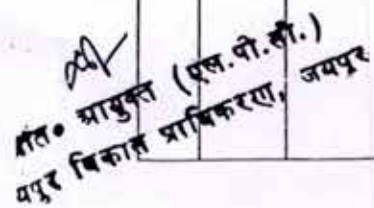 अति० आयुक्त (एल.पी.सी.)
यपुर विकास प्राधिकरण, जयपुर